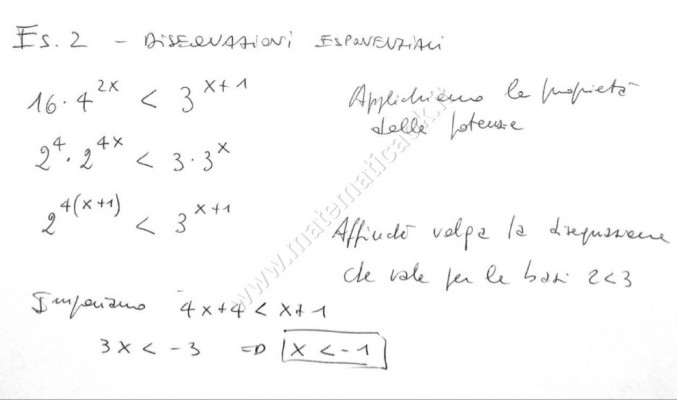 Es. 2 - DISEQUAZIONI ESPONENZIALI
16·4^{2x} < 3^{x+1}
Applichiamo le proprietà
delle potenze
2^4·2^{4x} < 3·3^x
2^{4(x+1)} < 3^{x+1}
Affinché valga la disequazione
che vale per le basi 2<3
Imponiamo 4x+4 < x+1
3x < -3 => x < -1
www.matematicaok.it